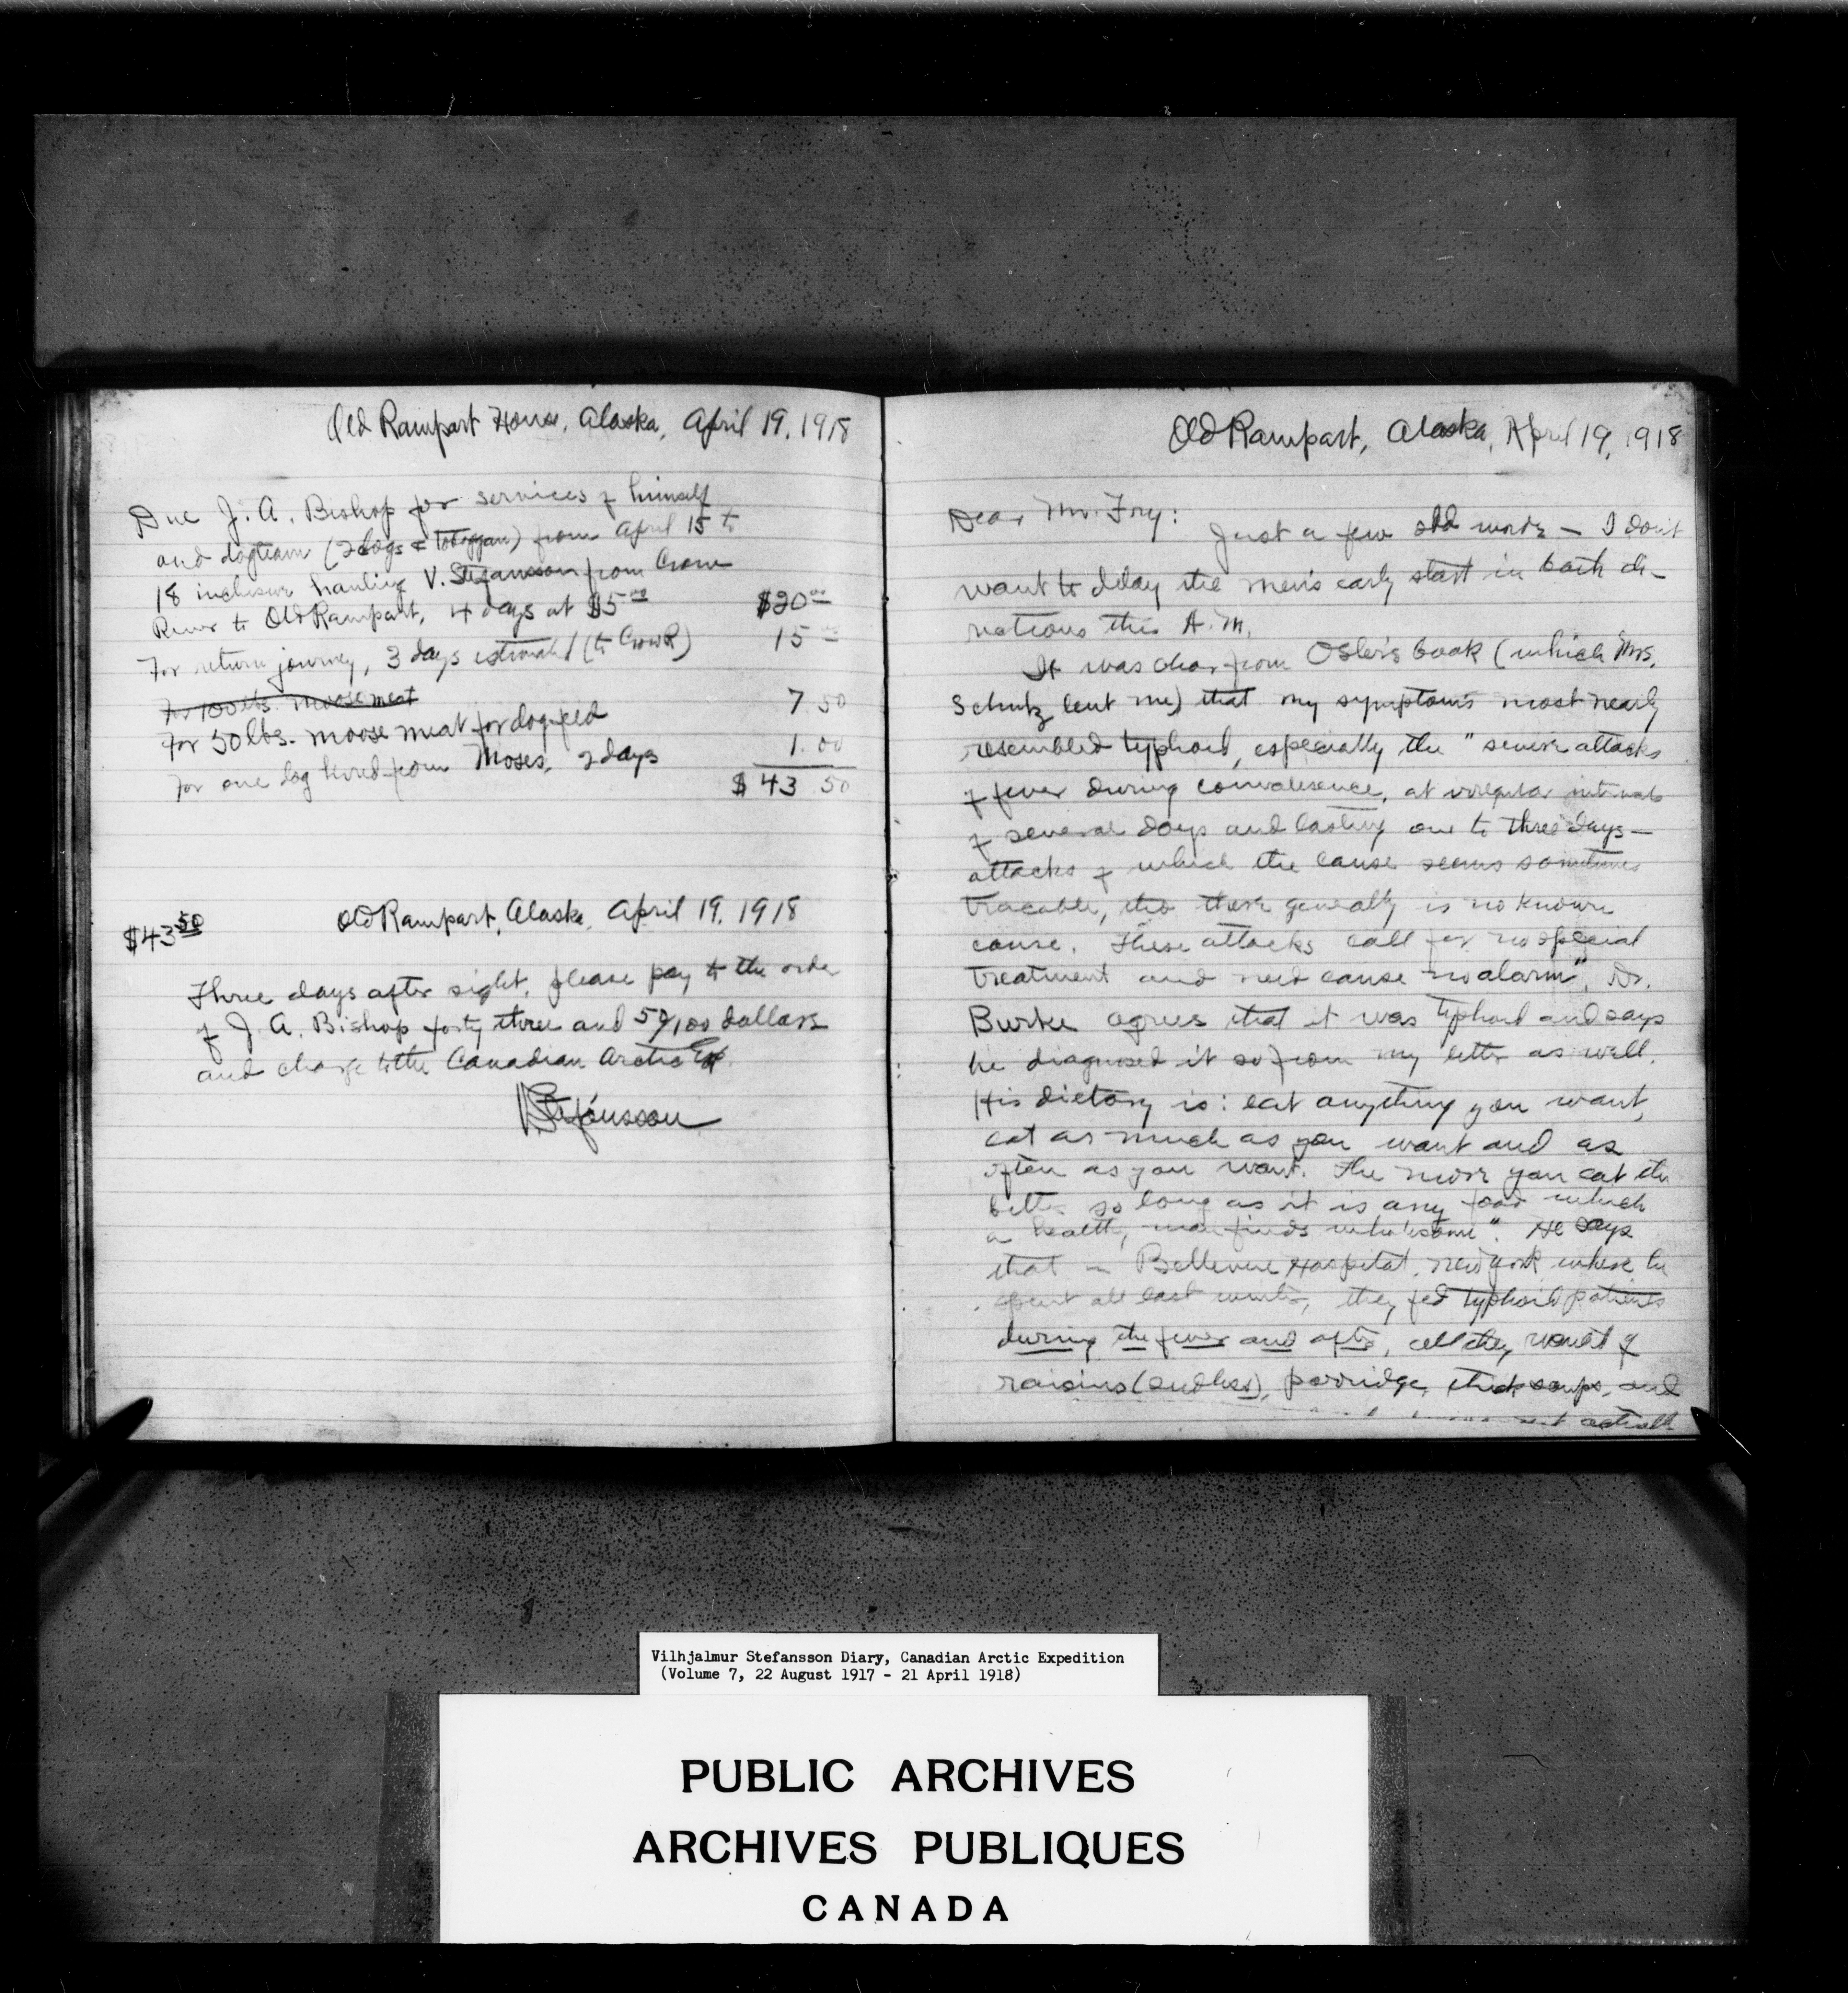 Old Rampart House, Alaska, April 19, 1918
Due J. A. Bishop for services of himself
and dogteam (2 dogs & toboggan) from April 15 to
18 inclusive hauling V. Stefansson from Crow
River to Old Rampart, 4 days at $5.00 $20.00
For return journey, 3 days estimated (to Crow R) 15
For 100 lbs. moose meat
For 50 lbs. moose meat for dogfeed 7 50
For one dog hired from Moses, 2 days 1.00
$ 43 50
$43.50 Old Rampart, Alaska, April 19, 1918
Three days after sight, please pay to the order
of J. A. Bishop forty three and 50/100 dollars
and charge to the Canadian Arctic Ex.
V Stefansson
Old Rampart, Alaska, April 19, 1918
Dear Mr. Fry:
Just a few odd words – I don't
want to delay the men's early start in both di-
rections this A.M.
It was clear from Osler's book (which Mrs.
Schutz lent me) that my symptoms most nearly
resembled typhoid, especially the "severe attacks
of fever during convalesence, at irregular intervals
of several days and lasting one to three days –
attacks of which the cause seems sometimes
tracable, tho there generally is no known
cause. These attacks call for no special
treatment and need cause no alarm". Dr.
Burke agrees that it was typhoid and says
he diagnosed it so from my letter as well.
His dietary is: eat anything you want,
eat as much as you want and as
often as you want. The more you eat the
better so long as it is any food which
a healthy man finds wholesome". He says
that in Bellevue Hospital, New York where he
spent all last winter, they fed typhoid patients
during the fever and after, all they wanted of
raisins (seedless), porridge, thick soups, and
Vilhjalmur Stefansson Diary, Canadian Arctic Expedition
(Volume 7, 22 August 1917 - 21 April 1918)
PUBLIC ARCHIVES
ARCHIVES PUBLIQUES
CANADA